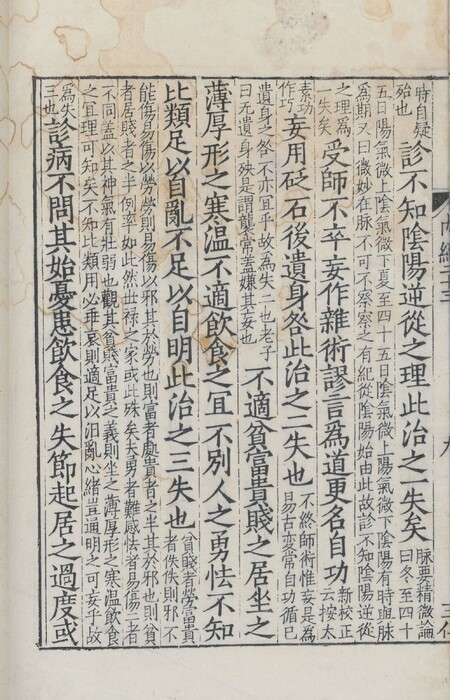 時自疑
殆也
診不知陰陽逆從之理此治之一失矣
脉要精微論
曰冬至四十
五日陽氣微上陰氣微下夏至四十五日陰氣微上陽氣微下陰陽有時與脉
為期又曰微妙在脉不可不察察之有紀從陰陽始由此故診不知陰陽逆從
之理為
一失矣
受師不卒妄作雜術謬言為道更名自功
新校正
云按太
素功
作巧
妄用砭石後遺身咎此治之二失也
不終師術惟妄是為
易古變常自功循己
遺身之咎不亦宜乎故為失二也老子
曰无遺身殃是謂襲常蓋嫌其妄也
不適貧富貴賤之居坐之
薄厚形之寒温不適飲食之宜不別人之勇怯不知
比類足以自亂不足以自明此治之三失也
貧賤者勞富貴
者佚佚則邪不
能傷易傷以勞勞則易傷以邪其於勞也則富者處貴者之半其於邪也則貧
者居賤者之半例率如此然世禄之家或此殊矣夫勇者難感怯者易傷二者
不同蓋以其神氣有壯弱也觀其貧賤富貴之義則坐之薄厚形之寒温飲食
之宜理可知矣不知比類用必乖衰則適足以汩亂心緒豈通明之可妄乎故
為失
三也
診病不問其始憂患飲食之失節起居之過度或